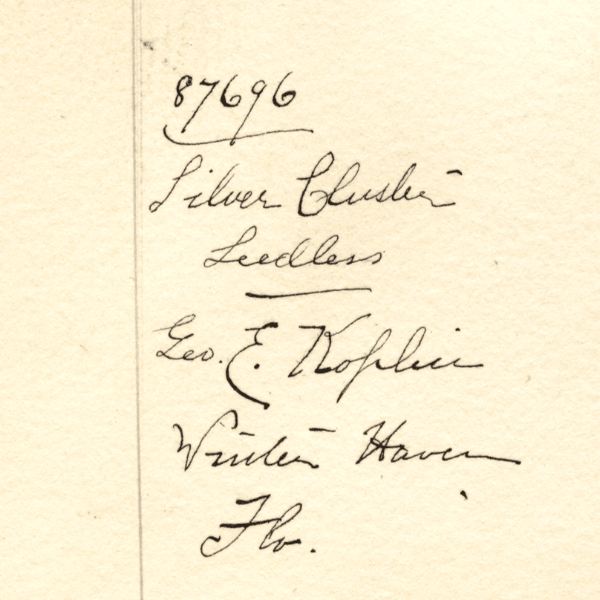 87696
Silver Cluster
Seedless
Geo. E. Koplin
Winter Haven
Flo.